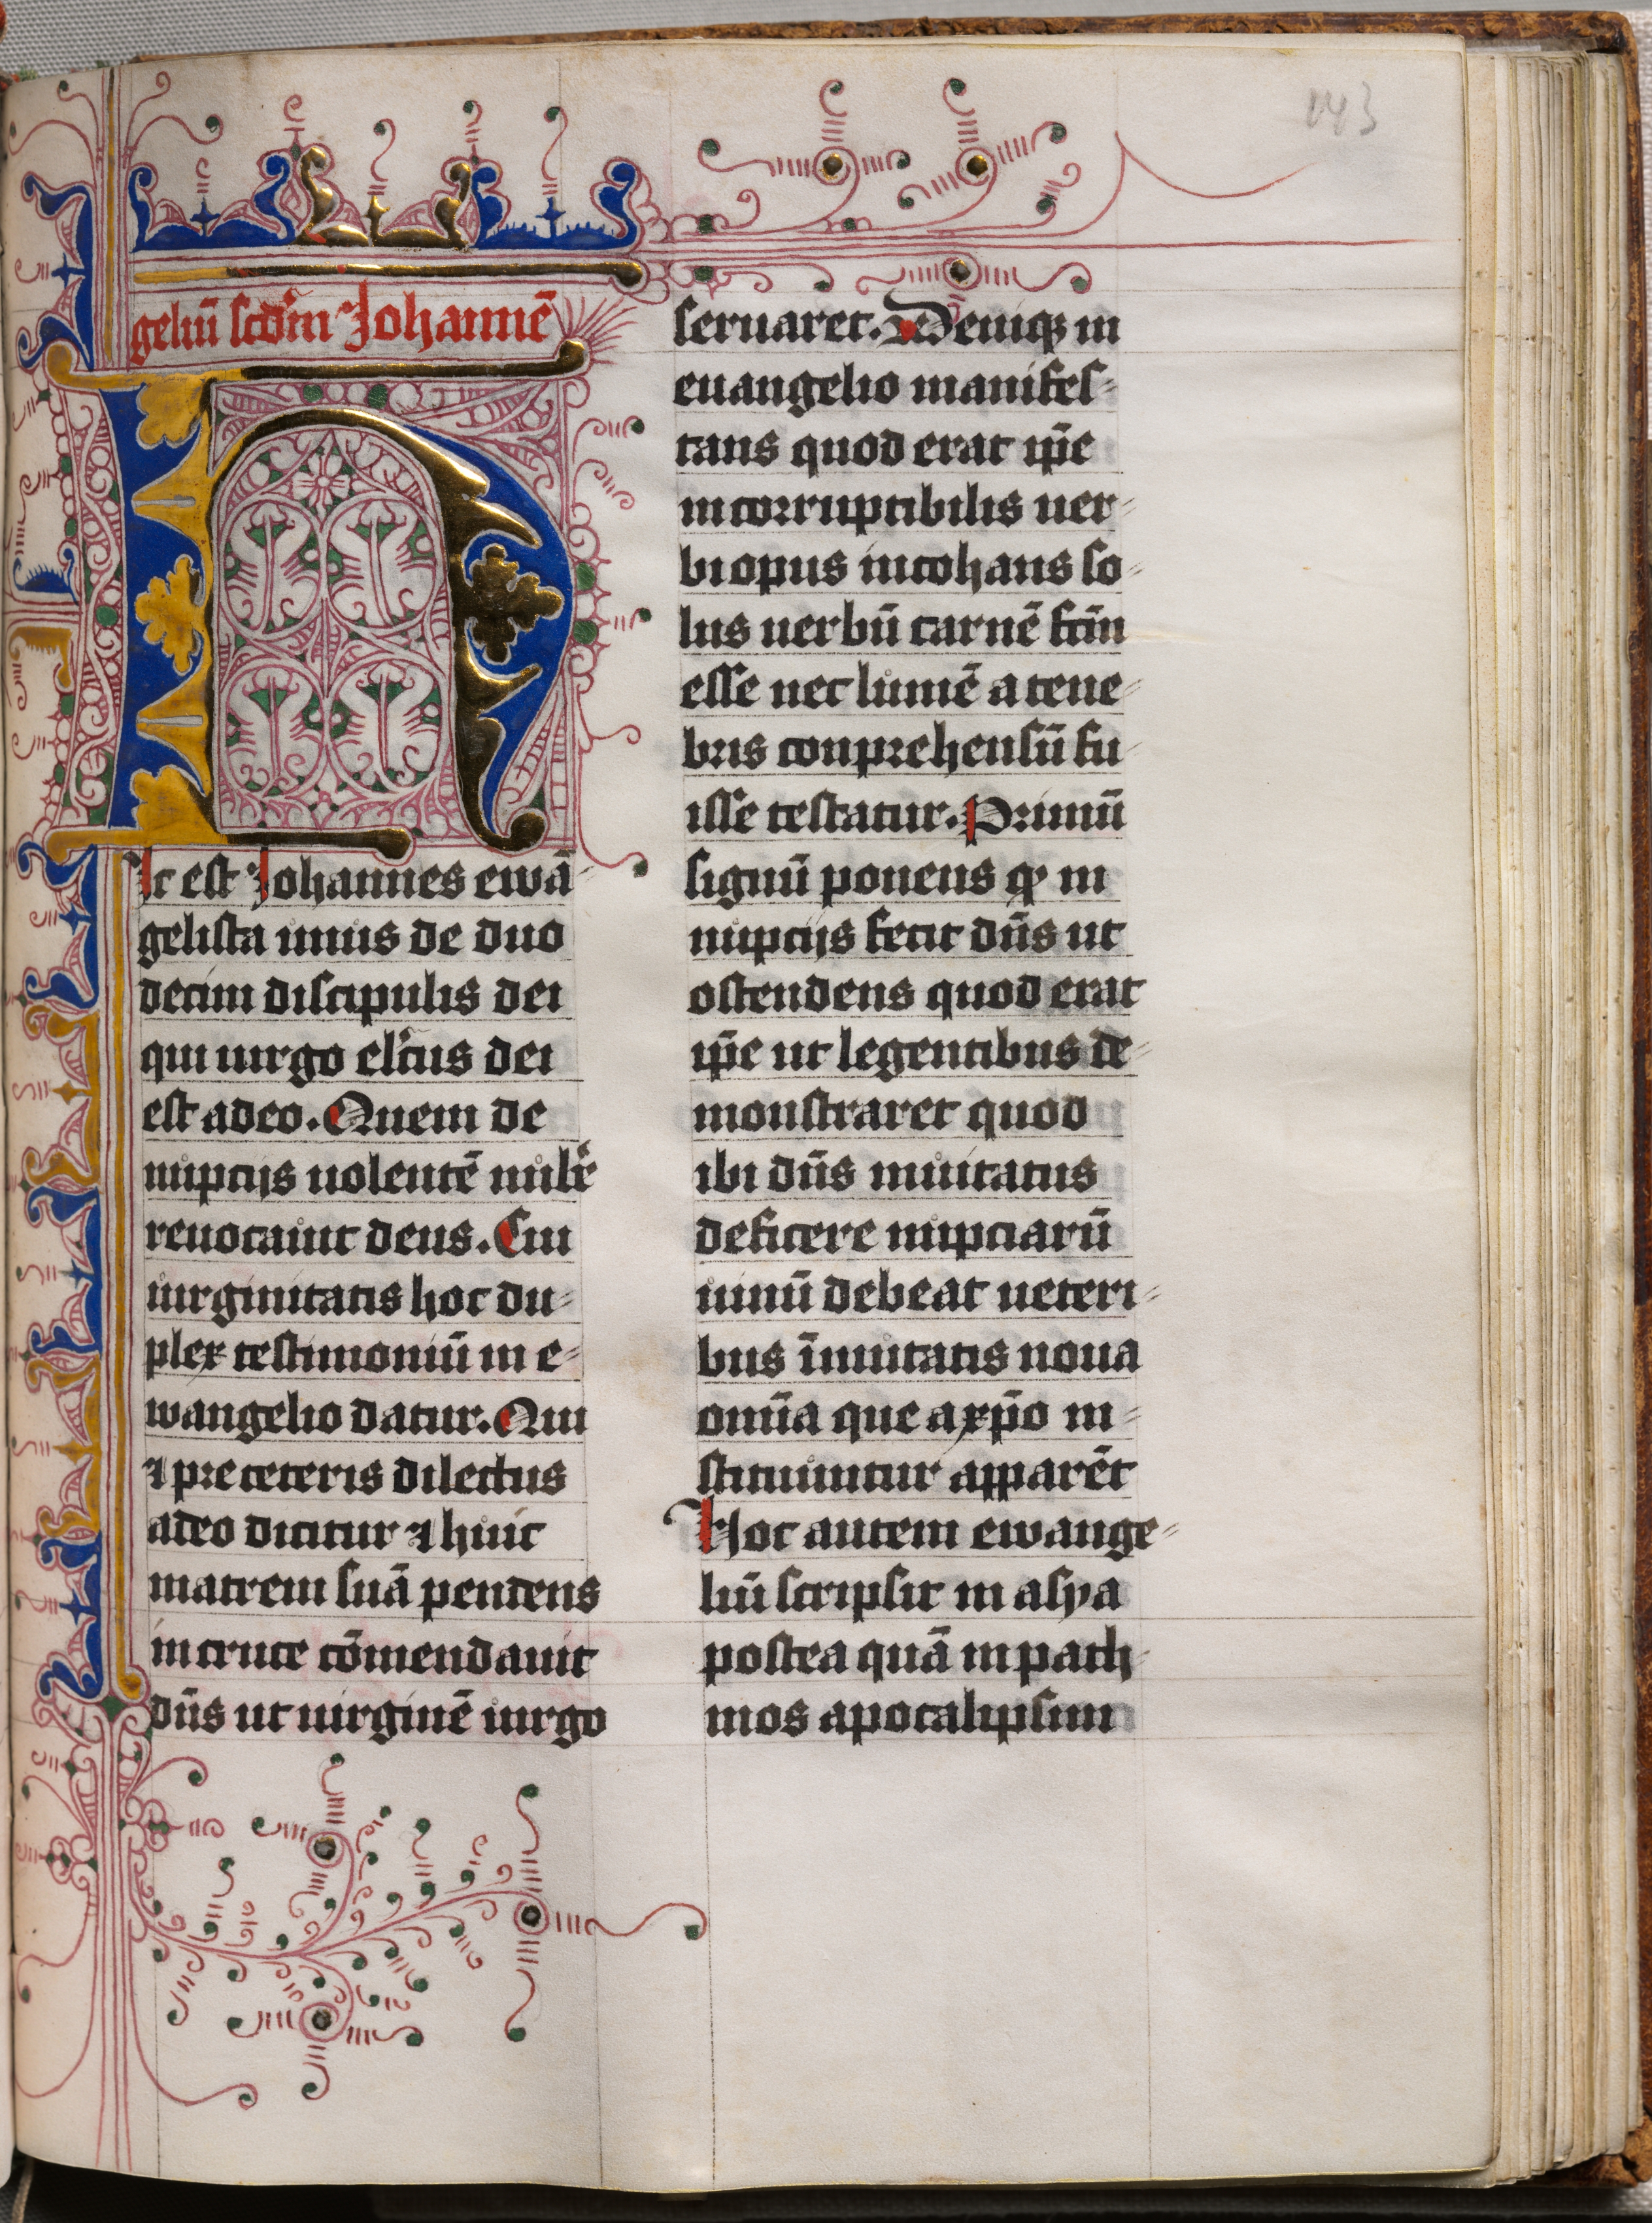 143
geliū scd'm Johannē
Hic est Johannes ewā
gelista unus de duo
decim discipulis dei
qui uirgo elc̄us dei
est adeo. Quem de
nuptijs uolentē nub'e
reuocauit deus. Cui
uirginitatis hoc du-
plex testimoniū in e-
wangelio datur. Qui
⁊ pre ceteris dilectus
adeo dicitur ⁊ huic
matrem suā pendens
in cruce cōmendauit
dn̄s ut uirginē uirgo
seruaret. Deniqꝫ in
euangelio manifes-
tans quod erat ip̄e
incorruptibilis uer-
bi opus incohans so-
lus uerbū carnē fc̄m
esse nec lumē a tene-
bris conprehensū fu-
isse testatur. Primū
signū ponens qͩ in
nuptijs fecit dn̄s ut
ostendens quod erat
ip̄e ut legentibus de-
monstraret quod
ibi dn̄s inuitatus
deficere nuptiarū
uinū debeat ueteri-
bus īmutatis noua
omīa que a xp̄o in-
stituuntur apparēt
Hoc autem ewange-
liū scripsit in asya
postea quā in path-
mos apocalipsim